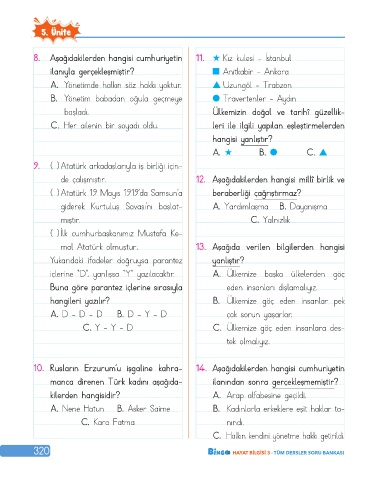 5. Ünite
8. Aşağıdakilerden hangisi cumhuriyetin
ilanıyla gerçekleşmiştir?
A. Yönetimde halkın söz hakkı yoktur.
B. Yönetim babadan oğula geçmeye
başladı.
C. Her ailenin bir soyadı oldu.
9. ( ) Atatürk arkadaşlarıyla iş birliği için-
de çalışmıştır.
( ) Atatürk 19 Mayıs 1919'da Samsun'a
giderek Kurtuluş Savaşı'nı başlat-
mıştır.
( ) İlk cumhurbaşkanımız Mustafa Ke-
mal Atatürk olmuştur.
Yukarıdaki ifadeler doğruysa parantez
içlerine "D", yanlışsa "Y" yazılacaktır.
Buna göre parantez içlerine sırasıyla
hangileri yazılır?
A. D - D - D B. D - Y - D
C. Y - Y - D
10. Rusların Erzurum'u işgaline kahra-
manca direnen Türk kadını aşağıda-
kilerden hangisidir?
A. Nene Hatun B. Asker Saime
C. Kara Fatma
11. ★ Kız kulesi - İstanbul
■ Anıtkabir - Ankara
▲ Uzungöl - Trabzon
● Travertenler - Aydın
Ülkemizin doğal ve tarihî güzellik-
leri ile ilgili yapılan eşleştirmelerden
hangisi yanlıştır?
A. ★ B. ● C. ▲
12. Aşağıdakilerden hangisi millî birlik ve
beraberliği çağrıştırmaz?
A. Yardımlaşma B. Dayanışma
C. Yalnızlık
13. Aşağıda verilen bilgilerden hangisi
yanlıştır?
A. Ülkemize başka ülkelerden göç
eden insanları dışlamalıyız.
B. Ülkemize göç eden insanlar pek
çok sorun yaşarlar.
C. Ülkemize göç eden insanlara des-
tek olmalıyız.
14. Aşağıdakilerden hangisi cumhuriyetin
ilanından sonra gerçekleşmemiştir?
A. Arap alfabesine geçildi.
B. Kadınlarla erkeklere eşit haklar ta-
nındı.
C. Halkın kendini yönetme hakkı getirildi.
320
BINGO HAYAT BİLGİSİ 3 - TÜM DERSLER SORU BANKASI